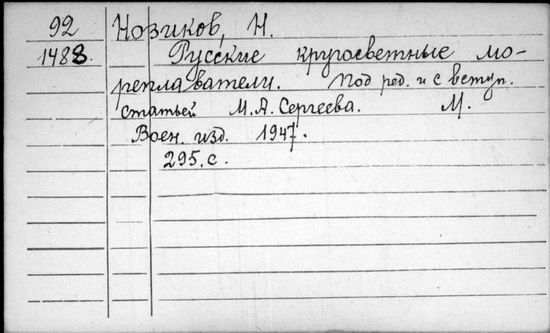 92 Нозиков, Н.
1488. Русские кругосветные мо-
реплаватели. Под ред. и с вступ.
статьей М.А. Сергеева. М.
Воен. изд. 1947.
295.с.